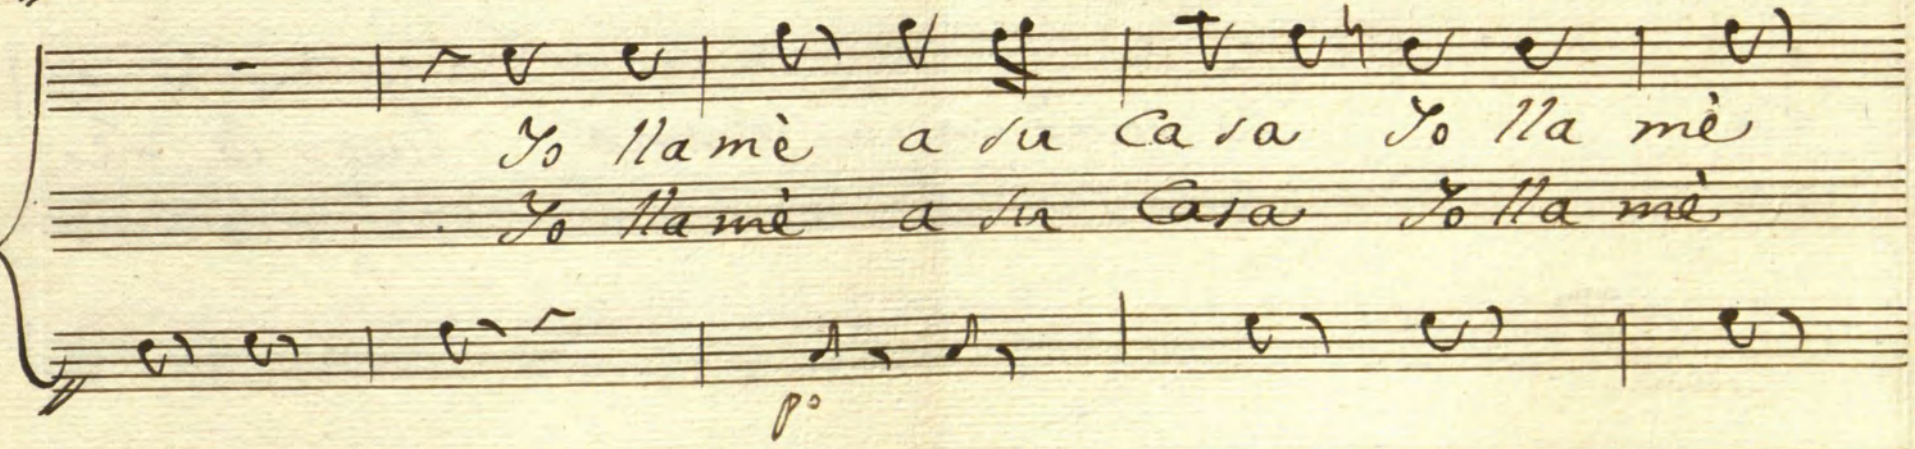 Yo llamè a su Casa Yo lla mè
Yo llamè a su Casa Yo lla mè
po